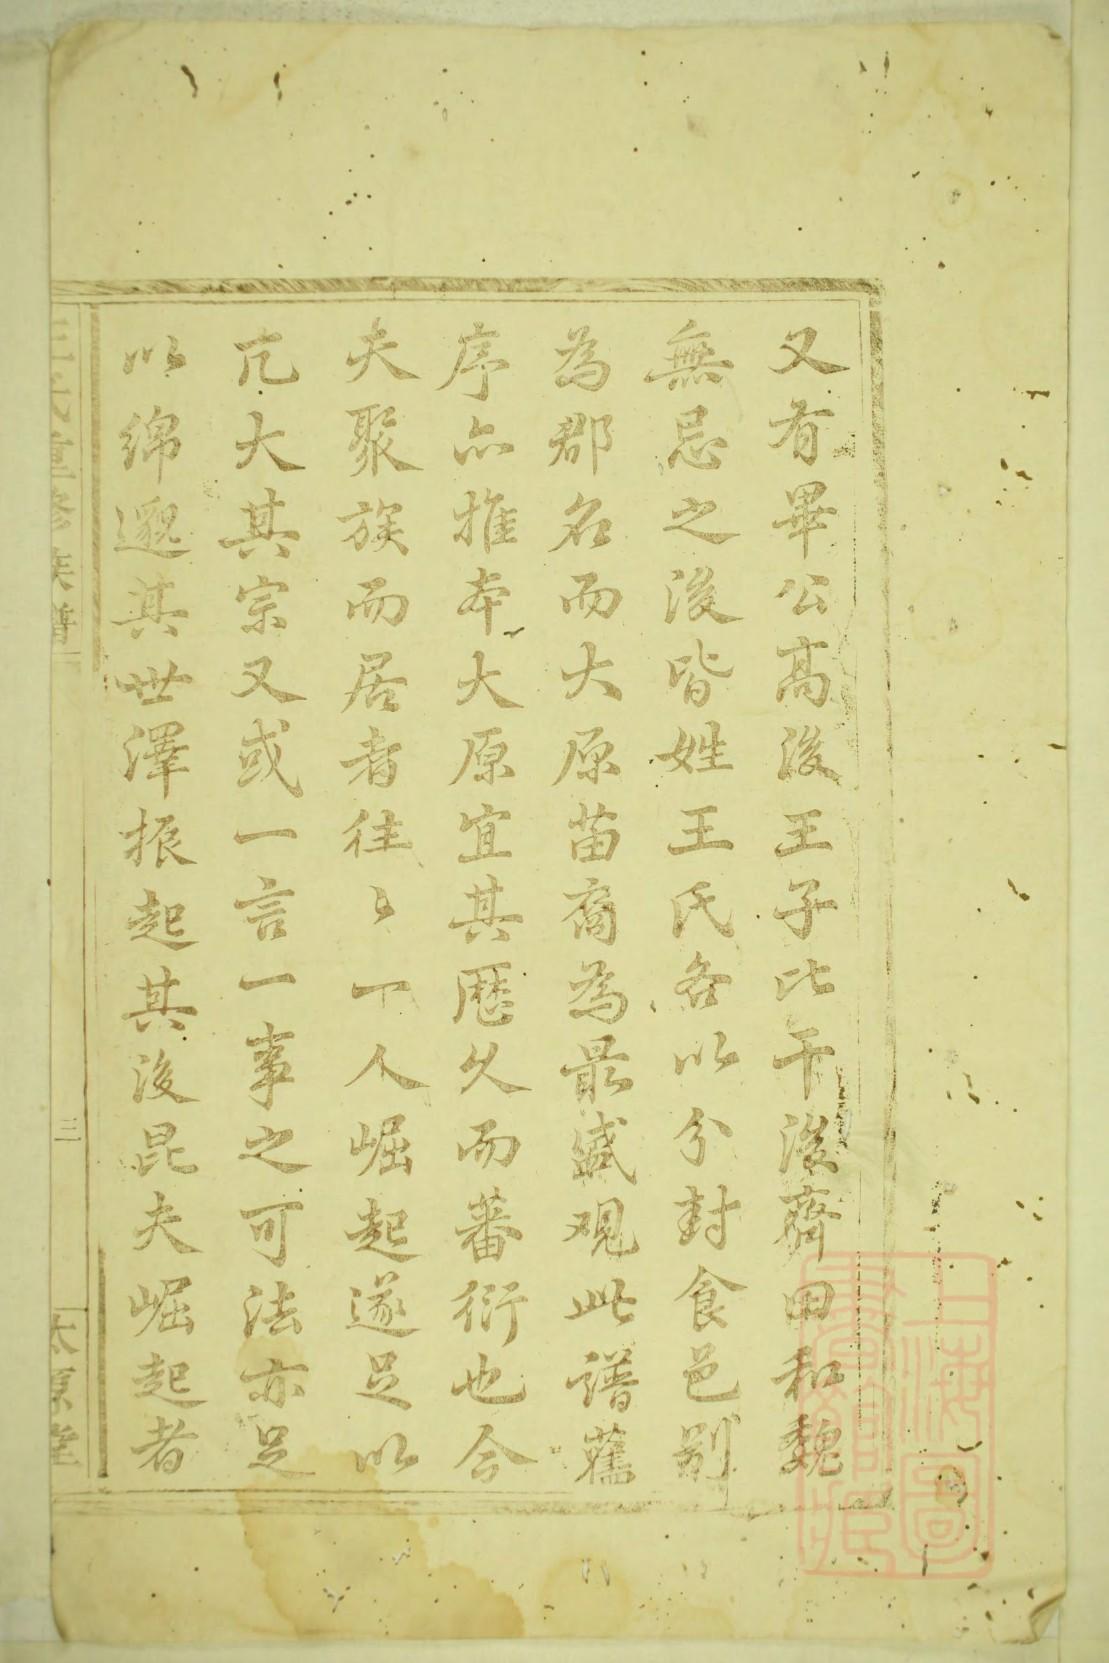 又有畢公高後王子比干後齊田和魏
無忌之後皆姓王氏各以分封食邑別
為郡名而大原苗裔為最盛观此譜舊
序亦推本大原宜其歷久而蕃衍也今
夫聚族而居者往〻一人崛起遂足以
亢大其宗又或一言一事之可法亦足
以綿邈其世澤振起其後昆夫崛起者
族譜
三
太原堂
上海圖書館藏